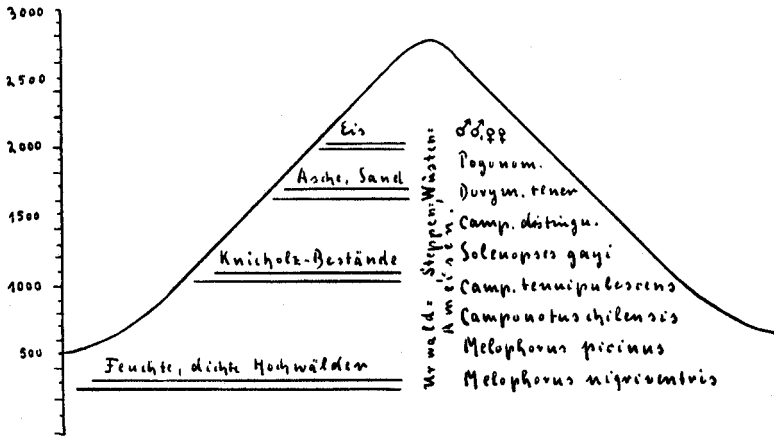 3000
2500
2000
1500
1000
500
Eis
Asche, Sand
Knieholz-Bestände
Feuchte, dichte Hochwälder
Urwald= Steppen= Wüsten=
Ameisen.
♂♂,♀♀
Pogonom.
Dorym. tener
Camp. distingu.
Solenopses gayi
Camp. tenuipubescens
Camponotus chilensis
Melophorus picinus
Melophorus nigriventris